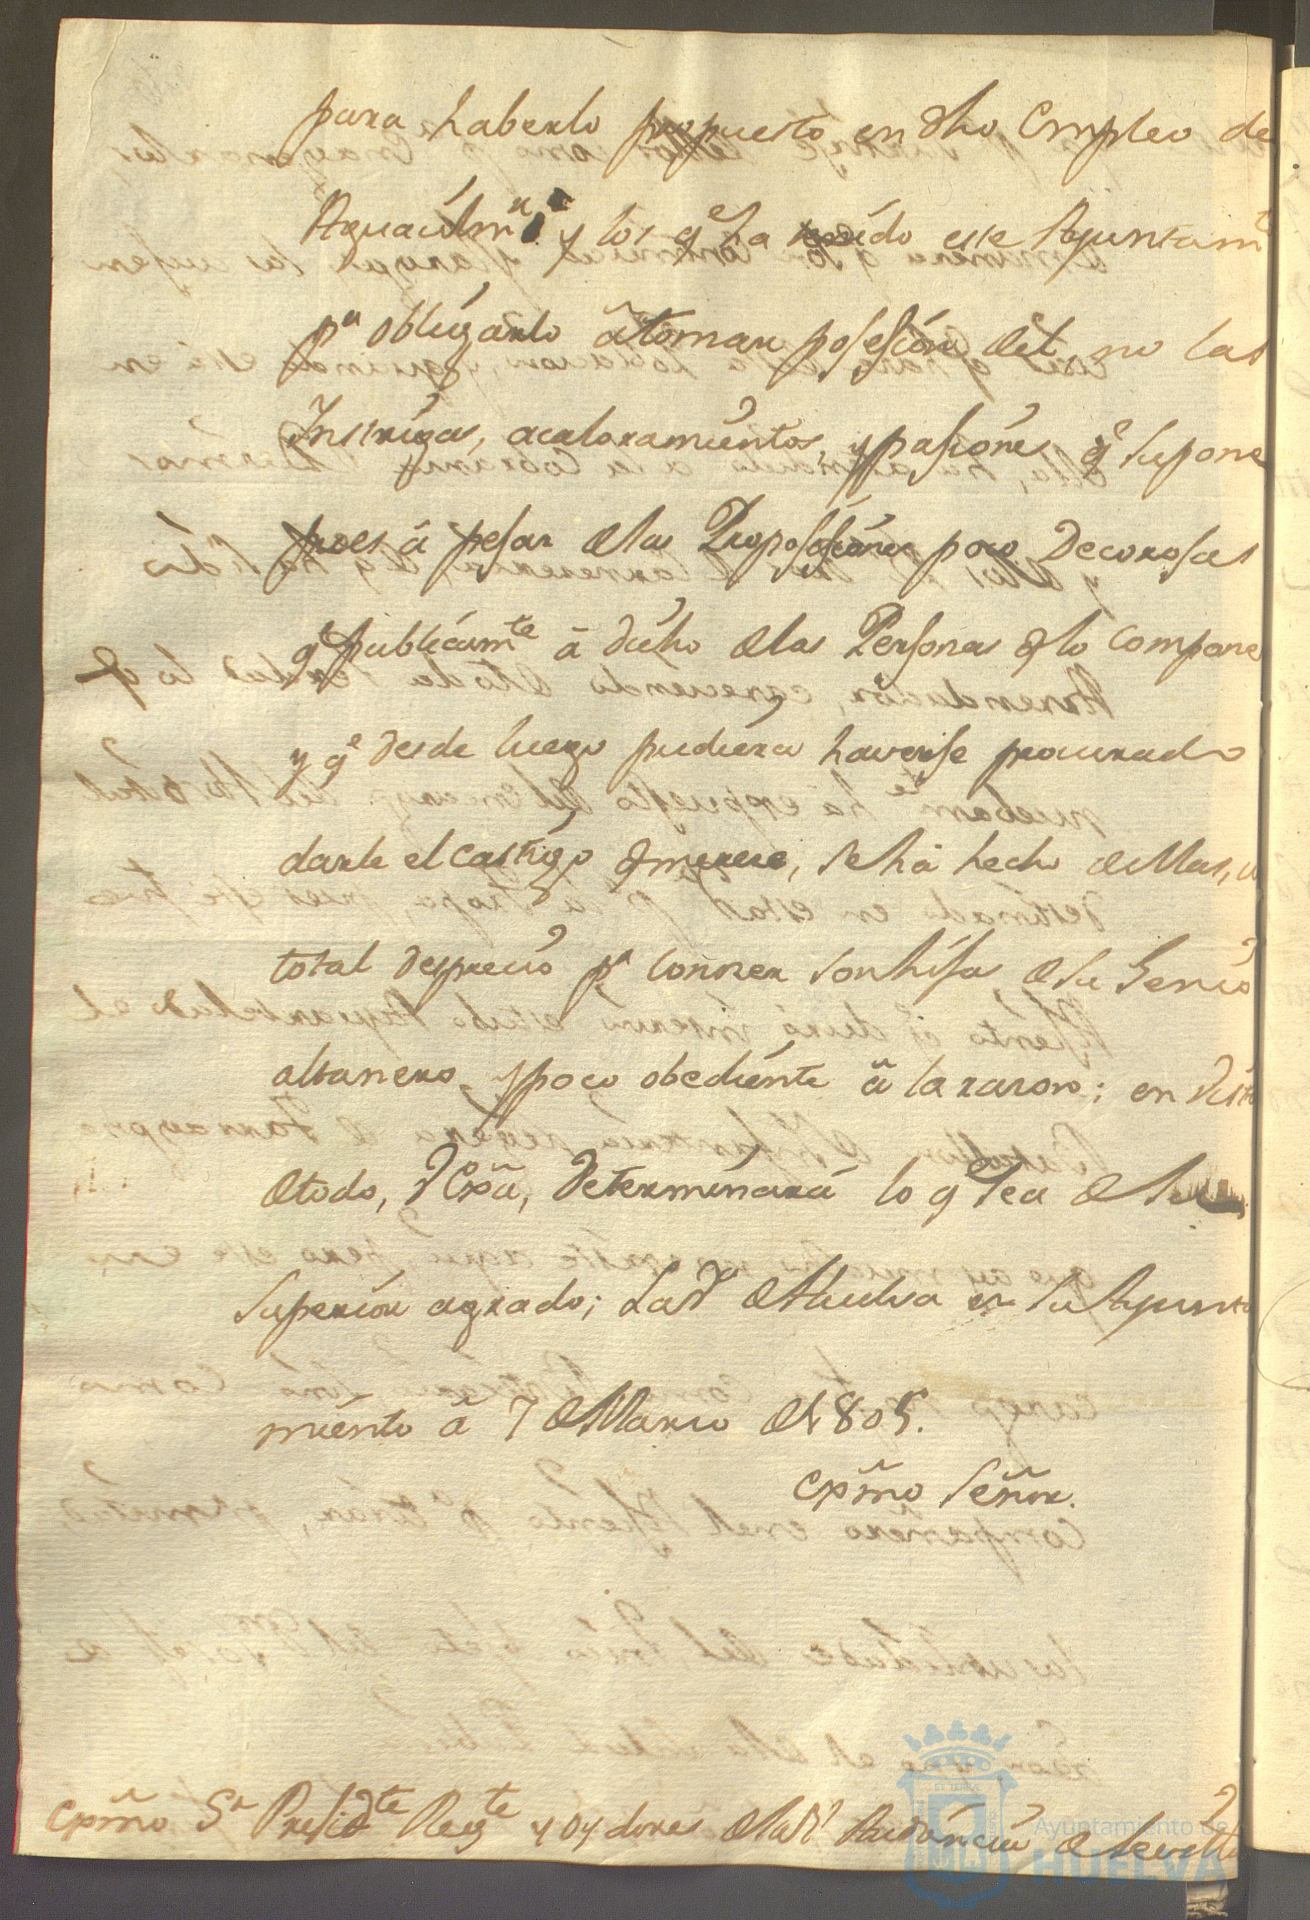 para haberlo propuesto en dho Empleo de
Aguacilm.r y los q.e ha tenido este Ayuntam.to
p.a obligarlo à tomar posesion del, no las
Intrigas, acaloramientos, y pasiones q.e supone
pues à pesar de las Proposiciones poco Decorosas
q.e publicam.te à dicho de las Personas q.e lo compone
y q.e desde luego pudiera haverse procurado
darle el castigo q.e merece, se hà hecho de ellas, un
total desprecio p.r conocer son hijas de su Genio
altanero, y poco obediente à la razon; en vista
de todo, V Exã, Determinarà lo q.e sea de su
Superior agrado; La V.a de Huelva en su Ayunta
miento à 7 de Marzo de 1805.
Exmo Señor.
Exmo S.r Presid.te Reg.te y oydores de la R.l Audiencia de Sevilla
Ayuntamiento de
HUELVA